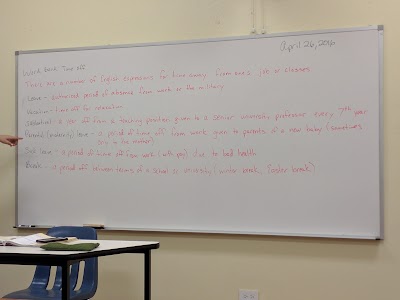 April 26, 2016
Word bank Time off
There are a number of English expressions for time away from one's job or classes
Leave - authorized period of absence from work or the military
Vacation - time off for relaxation
Sabbatical - a year off from a teaching position given to a senior university professor every 7th year
Parental (maternity) leave - a period of time off from work given to parents of a new baby (sometimes
only to the mother)
Sick leave - a period of time off from work (with pay) due to bad health
Break - a period off between terms of a school or university (winter break, Easter break)